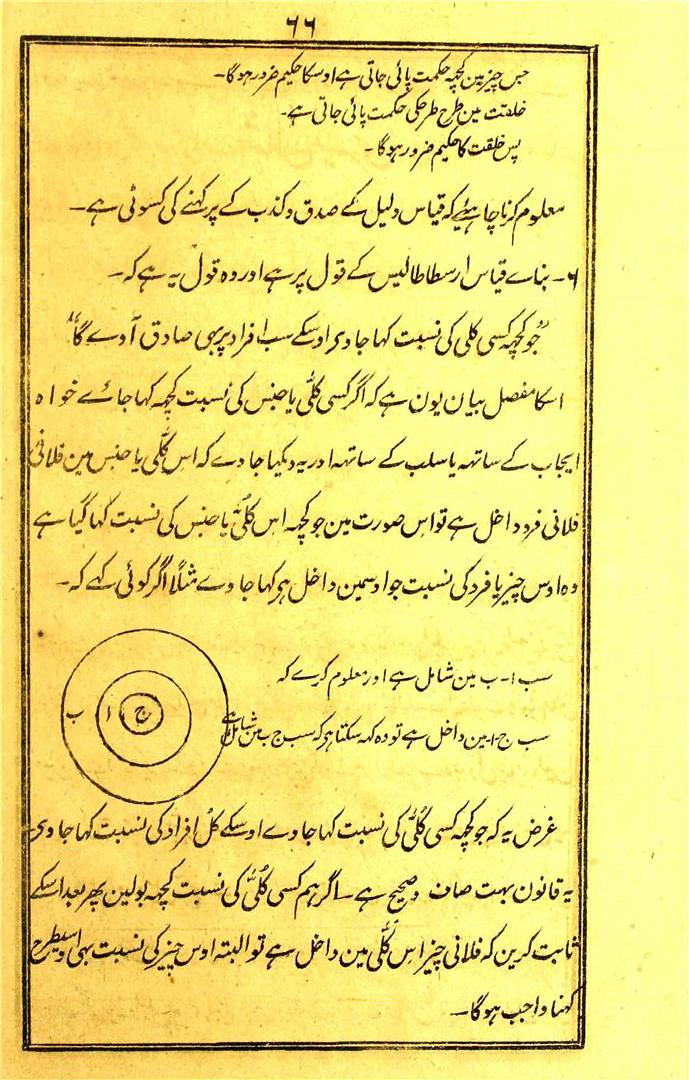 ۶۶
جس چیز مین کچہہ حکمت پائی جاتی ہے اوسکا حکیم ضرور ہوگا۔
خلقت مین طرح طرحکی حکمت پائی جاتی ہے۔
پس خلقت کا حکیم ضرور ہوگا۔
معلوم کرنا چاہیئے کہ قیاس دلیل کے صدق و کذب کے پرکہنے کی کسوٹی ہے۔
۶۔ بناے قیاس ارسطاطالیس کے قول پر ہے اور وہ قول یہ ہے کہ۔
”جو کچہہ کسی کلی کی نسبت کہا جاوی اوسکے سب افراد پر بہی صادق آوے گا“
اسکا مفصل بیان یون ہے کہ اگر کسی کلّی یا جنس کی نسبت کچہہ کہا جائے خواہ
ایجاب کے ساتہہ یا سلب کے ساتہہ اور یہ دیکہا جاوے کہ اس کُلّی یا جنس مین فلانی
فلانی فرد داخل ہے تو اس صورت مین جو کچہہ اس کلیّ یا جنس کی نسبت کہا گیا ہے
وہ اوس چیز یا فرد کی نسبت جو اوسمین داخل ہی کہا جاوے مثلاً اگر کوئی کہے کہ۔
سب ا۔ ب مین شامل ہے اور معلوم کرے کہ
سب ج۔ ا مین داخل ہے تو وہ کہہ سکتا ہی کہ سب ج ب مین شامل ہے
ب ا ج
غرض یہ کہ جو کچہہ کسی کُلیّ کی نسبت کہا جاوے اوسکے کل افراد کی نسبت کہا جاوی۔
یہ قانون بہت صاف و صحیح ہے۔ اگر ہم کسی کُلیّ کی نسبت کچہہ بولین پہر بعد اسکے
ثابت کرین کہ فلانی چیز اس کُلّی مین داخل ہے تو البتہ اوس چیز کی نسبت بہی اوسیطرح
کہنا واجب ہوگا۔